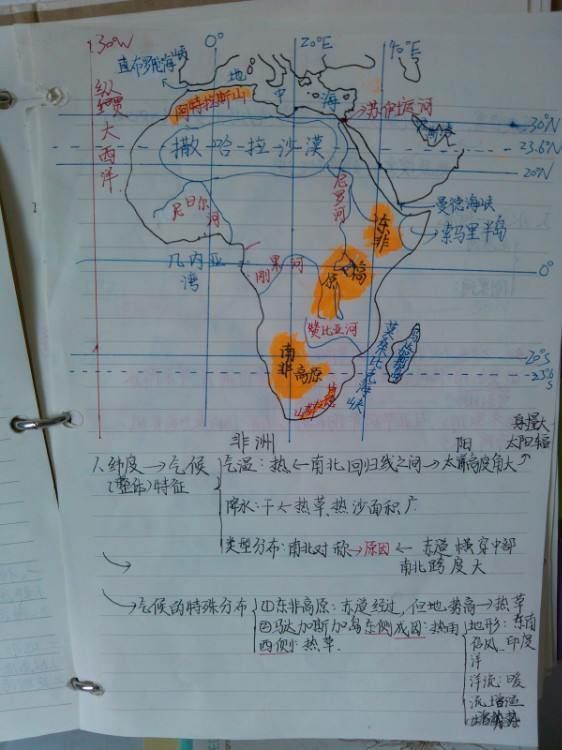 30°W
0°
20°E
40°E
直布罗陀海峡
地
中
海
阿特拉斯山
苏伊士运河
30°N
纵贯大西洋
撒哈拉沙漠
23.6°N
20°N
尼日尔河
尼罗河
曼德海峡
东非
索马里半岛
几内亚湾
刚果河
0°
原
赞比亚河
莫桑比克海峡
南非高原
20°S
23.6°S
非洲
1、纬度→气候
(整体)特征
气温:热←南北回归线之间→太阳高度角大
降水:干←热草、热沙面积广
类型分布:南北对称→原因←赤道横穿中部
南北跨度大
气候的特殊分布
①东非高原:赤道经过,但地势高→热草
②马达加斯加岛东侧成因:热雨
西侧:热草.
地形:东南
信风、印度
洋
洋流:暖
流增温